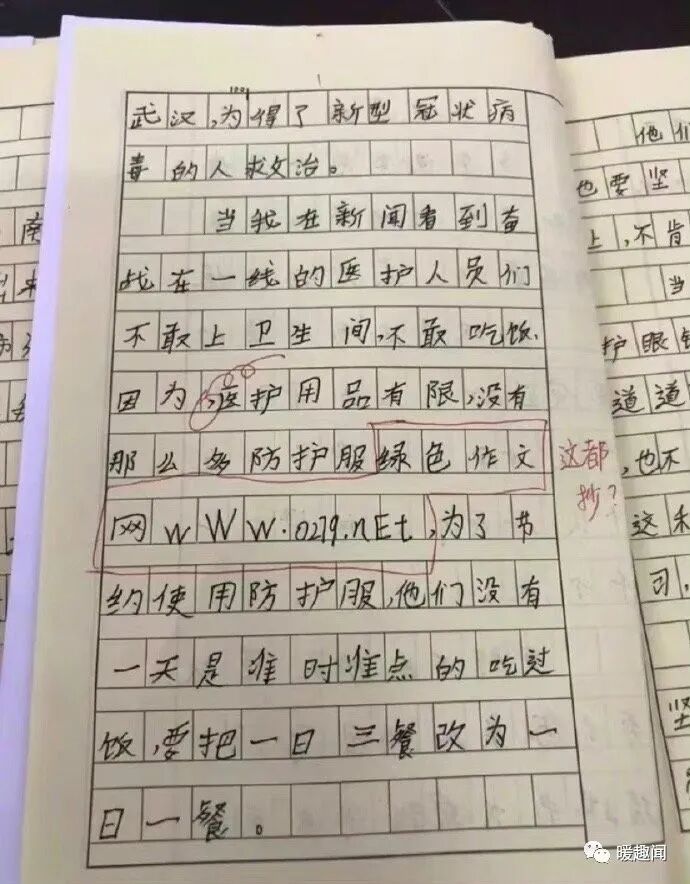 武汉,为得了新型冠状病
毒的人求救治。
当我在新闻看到奋
战在一线的医护人员们
不敢上卫生间,不敢吃饭.
因为,医护用品有限,没有
那么多防护服绿色作文
网wWw.0279.nEt,为了节
约使用防护服,他们没有
一天是准时准点的吃过
饭,要把一日三餐改为一
日一餐。
这都
抄?
他们
也要坚
上,不肯
当
护眼镜
道道
,也不
这和
习.
坚
南
暖趣闻